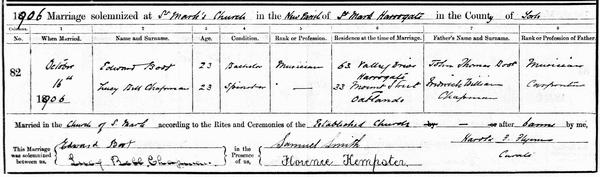 1906 Marriage solemnized at St Mark's Church in the New Parish of St Mark Harrogate in the County of York
Columns. 1 2 3 4 5 6 7 8
When Married. Name and Surname. Age. Condition. Rank or Profession. Residence at the time of Marriage. Father's Name and Surname. Rank or Profession of Father.
82 October 16th 1906 Edward Boot 23 Bachelor Musician 63 Valley Drive Harrogate John Thomas Boot Musician
Lucy Bell Chapman 23 Spinster — 33 Mount Street Oatlands Frederick William Chapman Carpenter
Married in the Church of St Mark according to the Rites and Ceremonies of the Established Church by — or — after Banns by me,
This Marriage was solemnized between us, Edward Boot in the Presence of us, Samuel Smith Harold F.
Lucy Bell Chapman. Florence Hempster. Curate